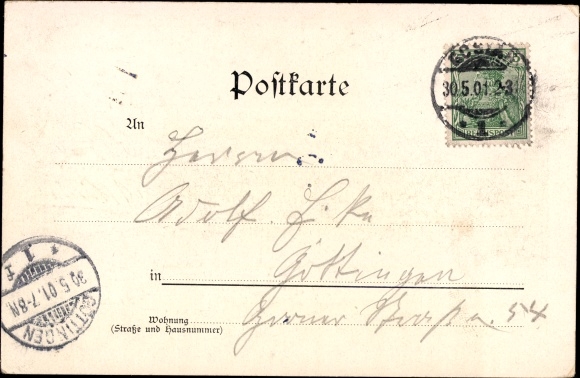 Postkarte
30.5.01. 2-3
An
Herrn
Adolf
in Göttingen
Wohnung
(Straße und Hausnummer)
54
GÖTTINGEN
30.5.01.7-8N.
1